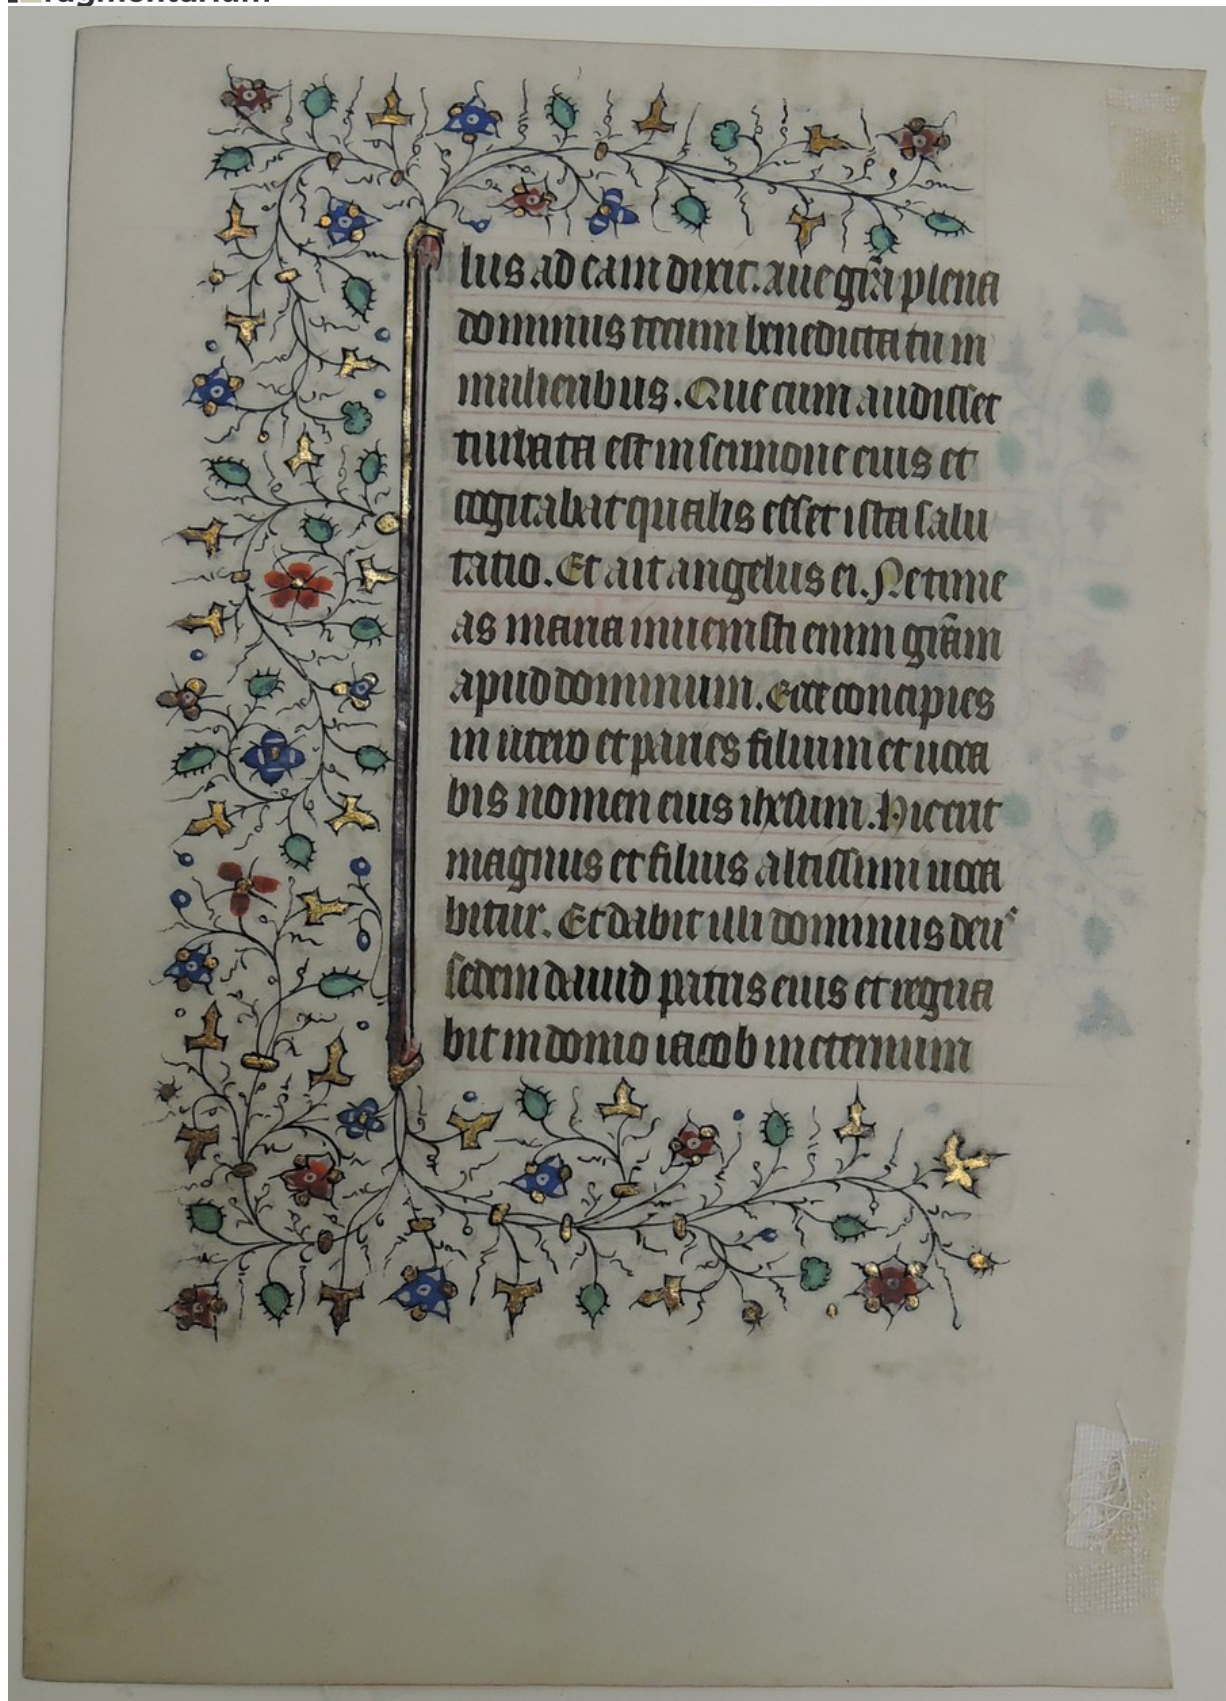 fragmentarium
lus ad eam dixit. aue gr̄a plena
dominus tecum benedicta tu in
mulieribus. Que cum audisset
turbata est in sermone eius et
cogitabat qualis esset ista salu
tatio. Et ait angelus ei. Ne time
as maria inuenisti enim gr̄am
apud dominum. Ecce concipies
in utero et paries filium et uoca
bis nomen eius ihesum. Hic erit
magnus et filius altissimi uoca
bitur. Et dabit illi dominus deus
sedem dauid patris eius et regna
bit in domo iacob in eternum